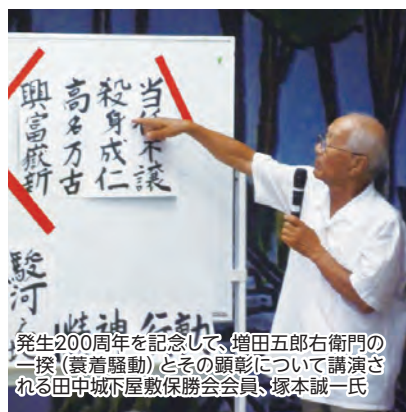 当仁不譲
殺身成仁
高名万古
興富嶽新
駿河
精神 行動
発生200周年を記念して、増田五郎右衛門の
一揆（蓑着騒動）とその顕彰について講演さ
れる田中城下屋敷保勝会会員、塚本誠一氏